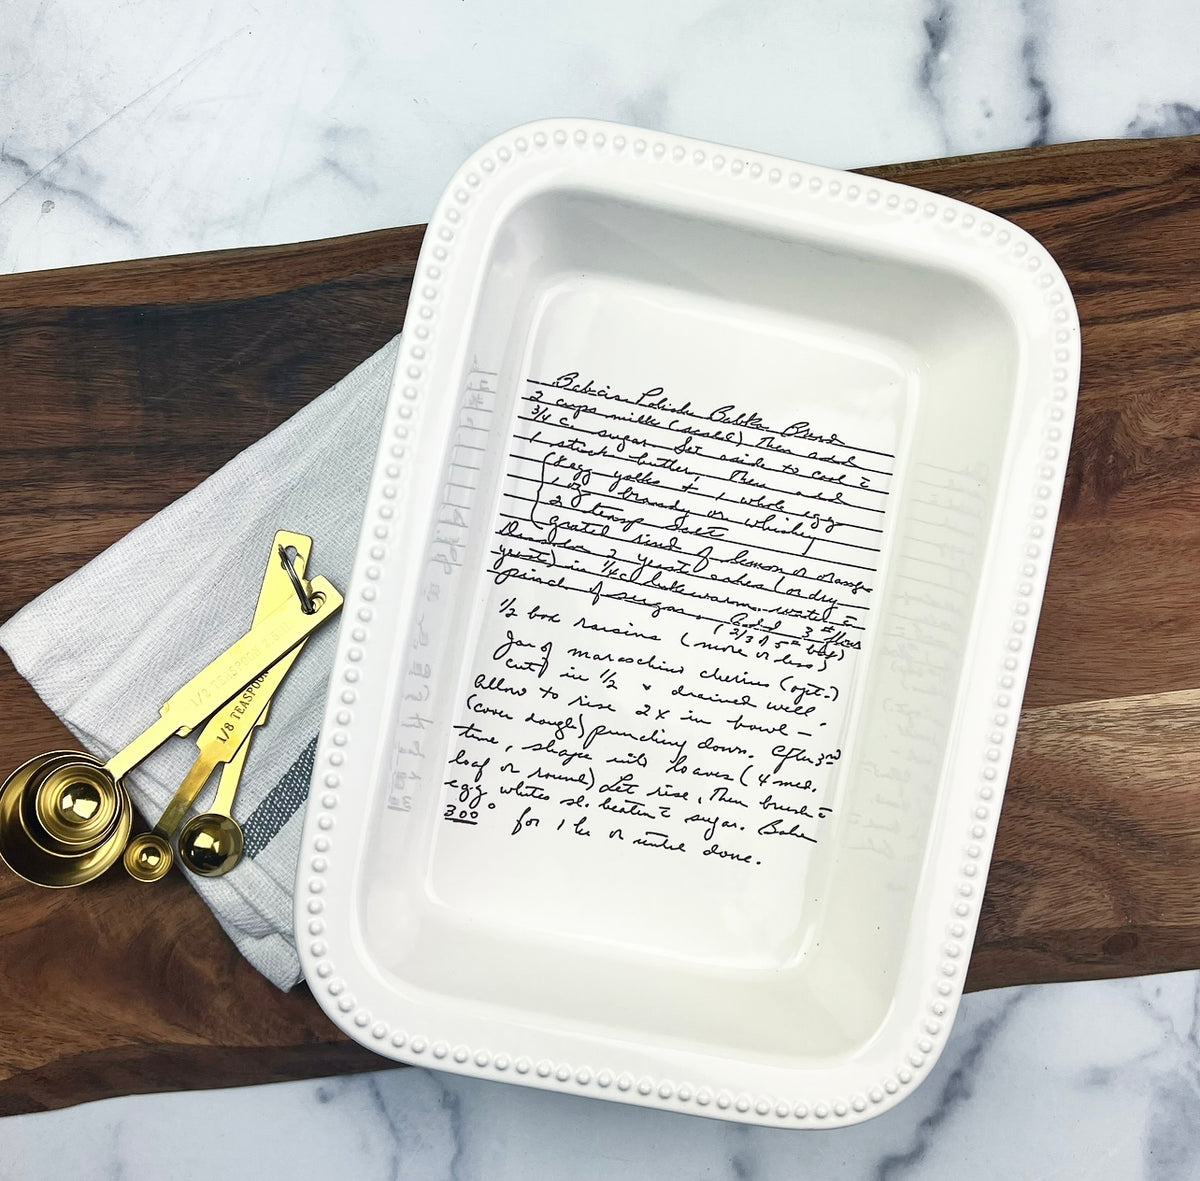 Babcia's Polish Babka Bread
2 cups milk (scald) Then add
3/4 c. sugar Set aside to cool c̄
1 stick butter, Then add
8 egg yolks + 1 whole egg
1 oz brandy or whiskey
2 teasp salt
grated rind of lemon or orange
Dissolve 2 yeast cakes (or dry
yeast) in 1/4 c lukewarm water c̄
pinch of sugar. Add 3# flour
(2/3 of 5# bag)
1/2 box raisins (more or less)
Jar of maraschino cherries (opt.)
cut in 1/2 & drained well.
Allow to rise 2X in bowl –
(cover dough) punching down. After 3rd
time, shape into loaves (4 med.
loaf or round) Let rise, Then brush c̄
egg whites sl. beaten c̄ sugar. Bake
300° for 1 hr or until done.
1/2 TEASPOON 2.5ml
1/8 TEASPOON